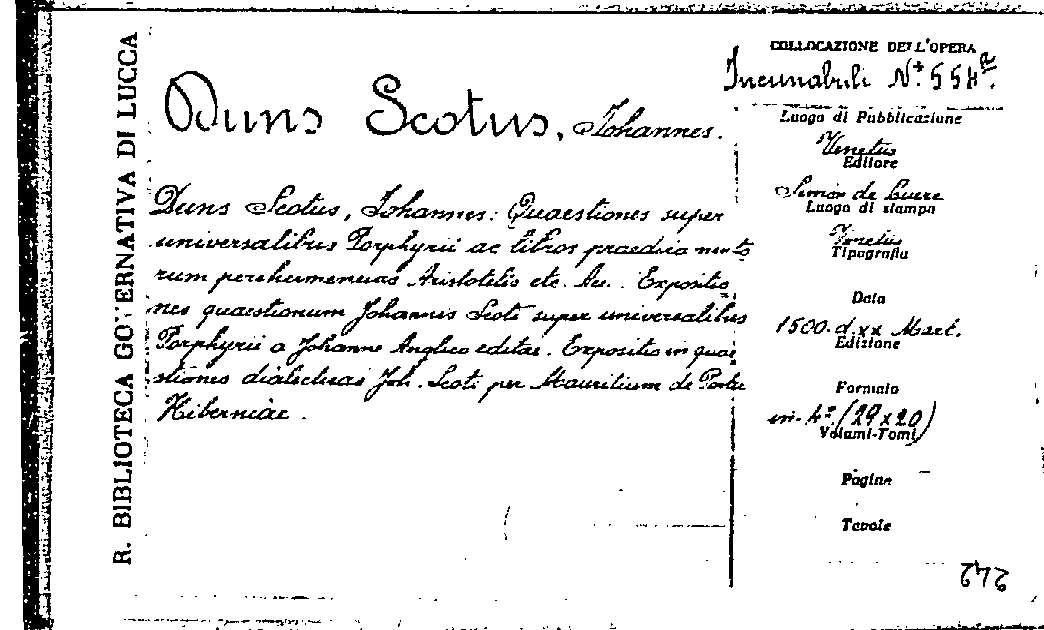 R. BIBLIOTECA GOVERNATIVA DI LUCCA
Duns Scotus, Johannes.
Duns Scotus, Johannes: Quaestiones super
universalibus Porphyrii ac libros praedicamento
rum perihermenias Aristotelis etc. Ac. . Expositio
nes quaestionum Johannis Scoti super universalibus
Porphyrii a Johanne Anglico editae. Expositio in quae
stiones dialecticas Joh. Scoti per Mauritium de Portu
Hiberniae.
COLLOCAZIONE DELL'OPERA
Incunabuli N°. 554
Luogo di Pubblicazione
Venetus
Editore
Simon de Luere
Luogo di stampa
Venetus
Tipografia
Data
1500. d. xx Mart.
Edizione
Formato
in-4°. (29x20)
Volumi-Tomi
Pagine
Tavole
242